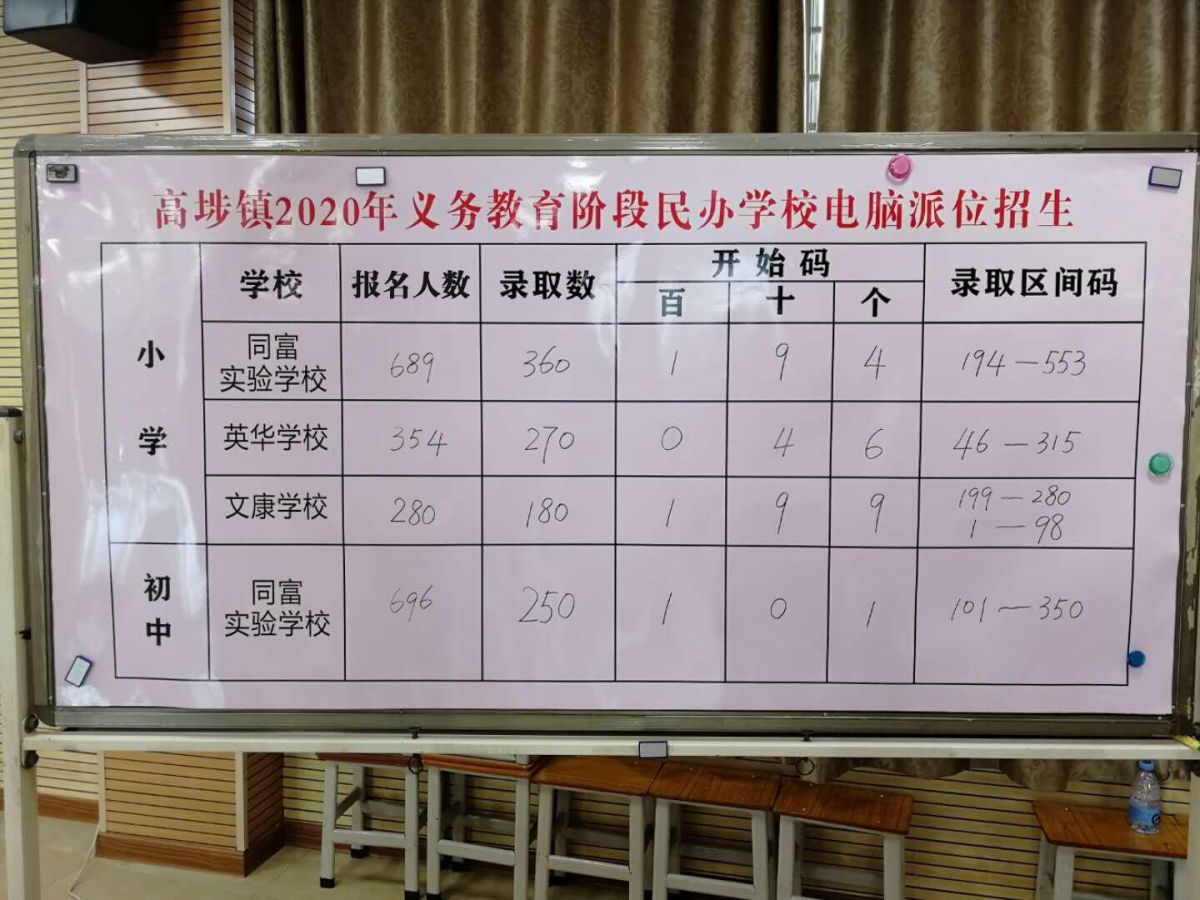 高埗镇2020年义务教育阶段民办学校电脑派位招生
学校 报名人数 录取数 开始码 录取区间码
百 十 个
小学
同富
实验学校 689 360 1 9 4 194—553
英华学校 354 270 0 4 6 46—315
文康学校 280 180 1 9 9 199—280
1—98
初中
同富
实验学校 696 250 1 0 1 101—350